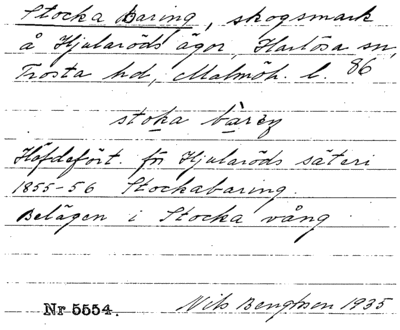 Stocka Baring, skogsmark
å Hjularöds ägor, Harlösa sn,
Frosta hd, Malmöh. l. 86
stoka bàreŋ
HäfdeFört. för Hjularöds säteri
1855-56 Stockabaring.
Belägen i Stocka vång
Nr 5554. Nils Bengtsson 1935